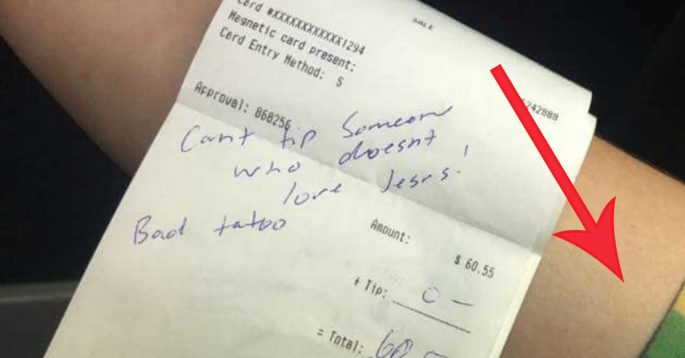 SALE
Card #XXXXXXXXXXXX1294
Magnetic card present:
Card Entry Method: S
Approval: 868256
Can't tip Someone
who doesn't
love Jesus!
Bad tatoo
Amount: $ 60.55
+ Tip: 0 —
= Total: